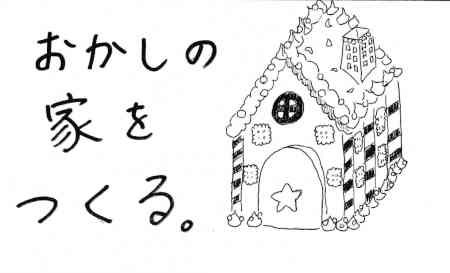 おかしの
家を
つくる。